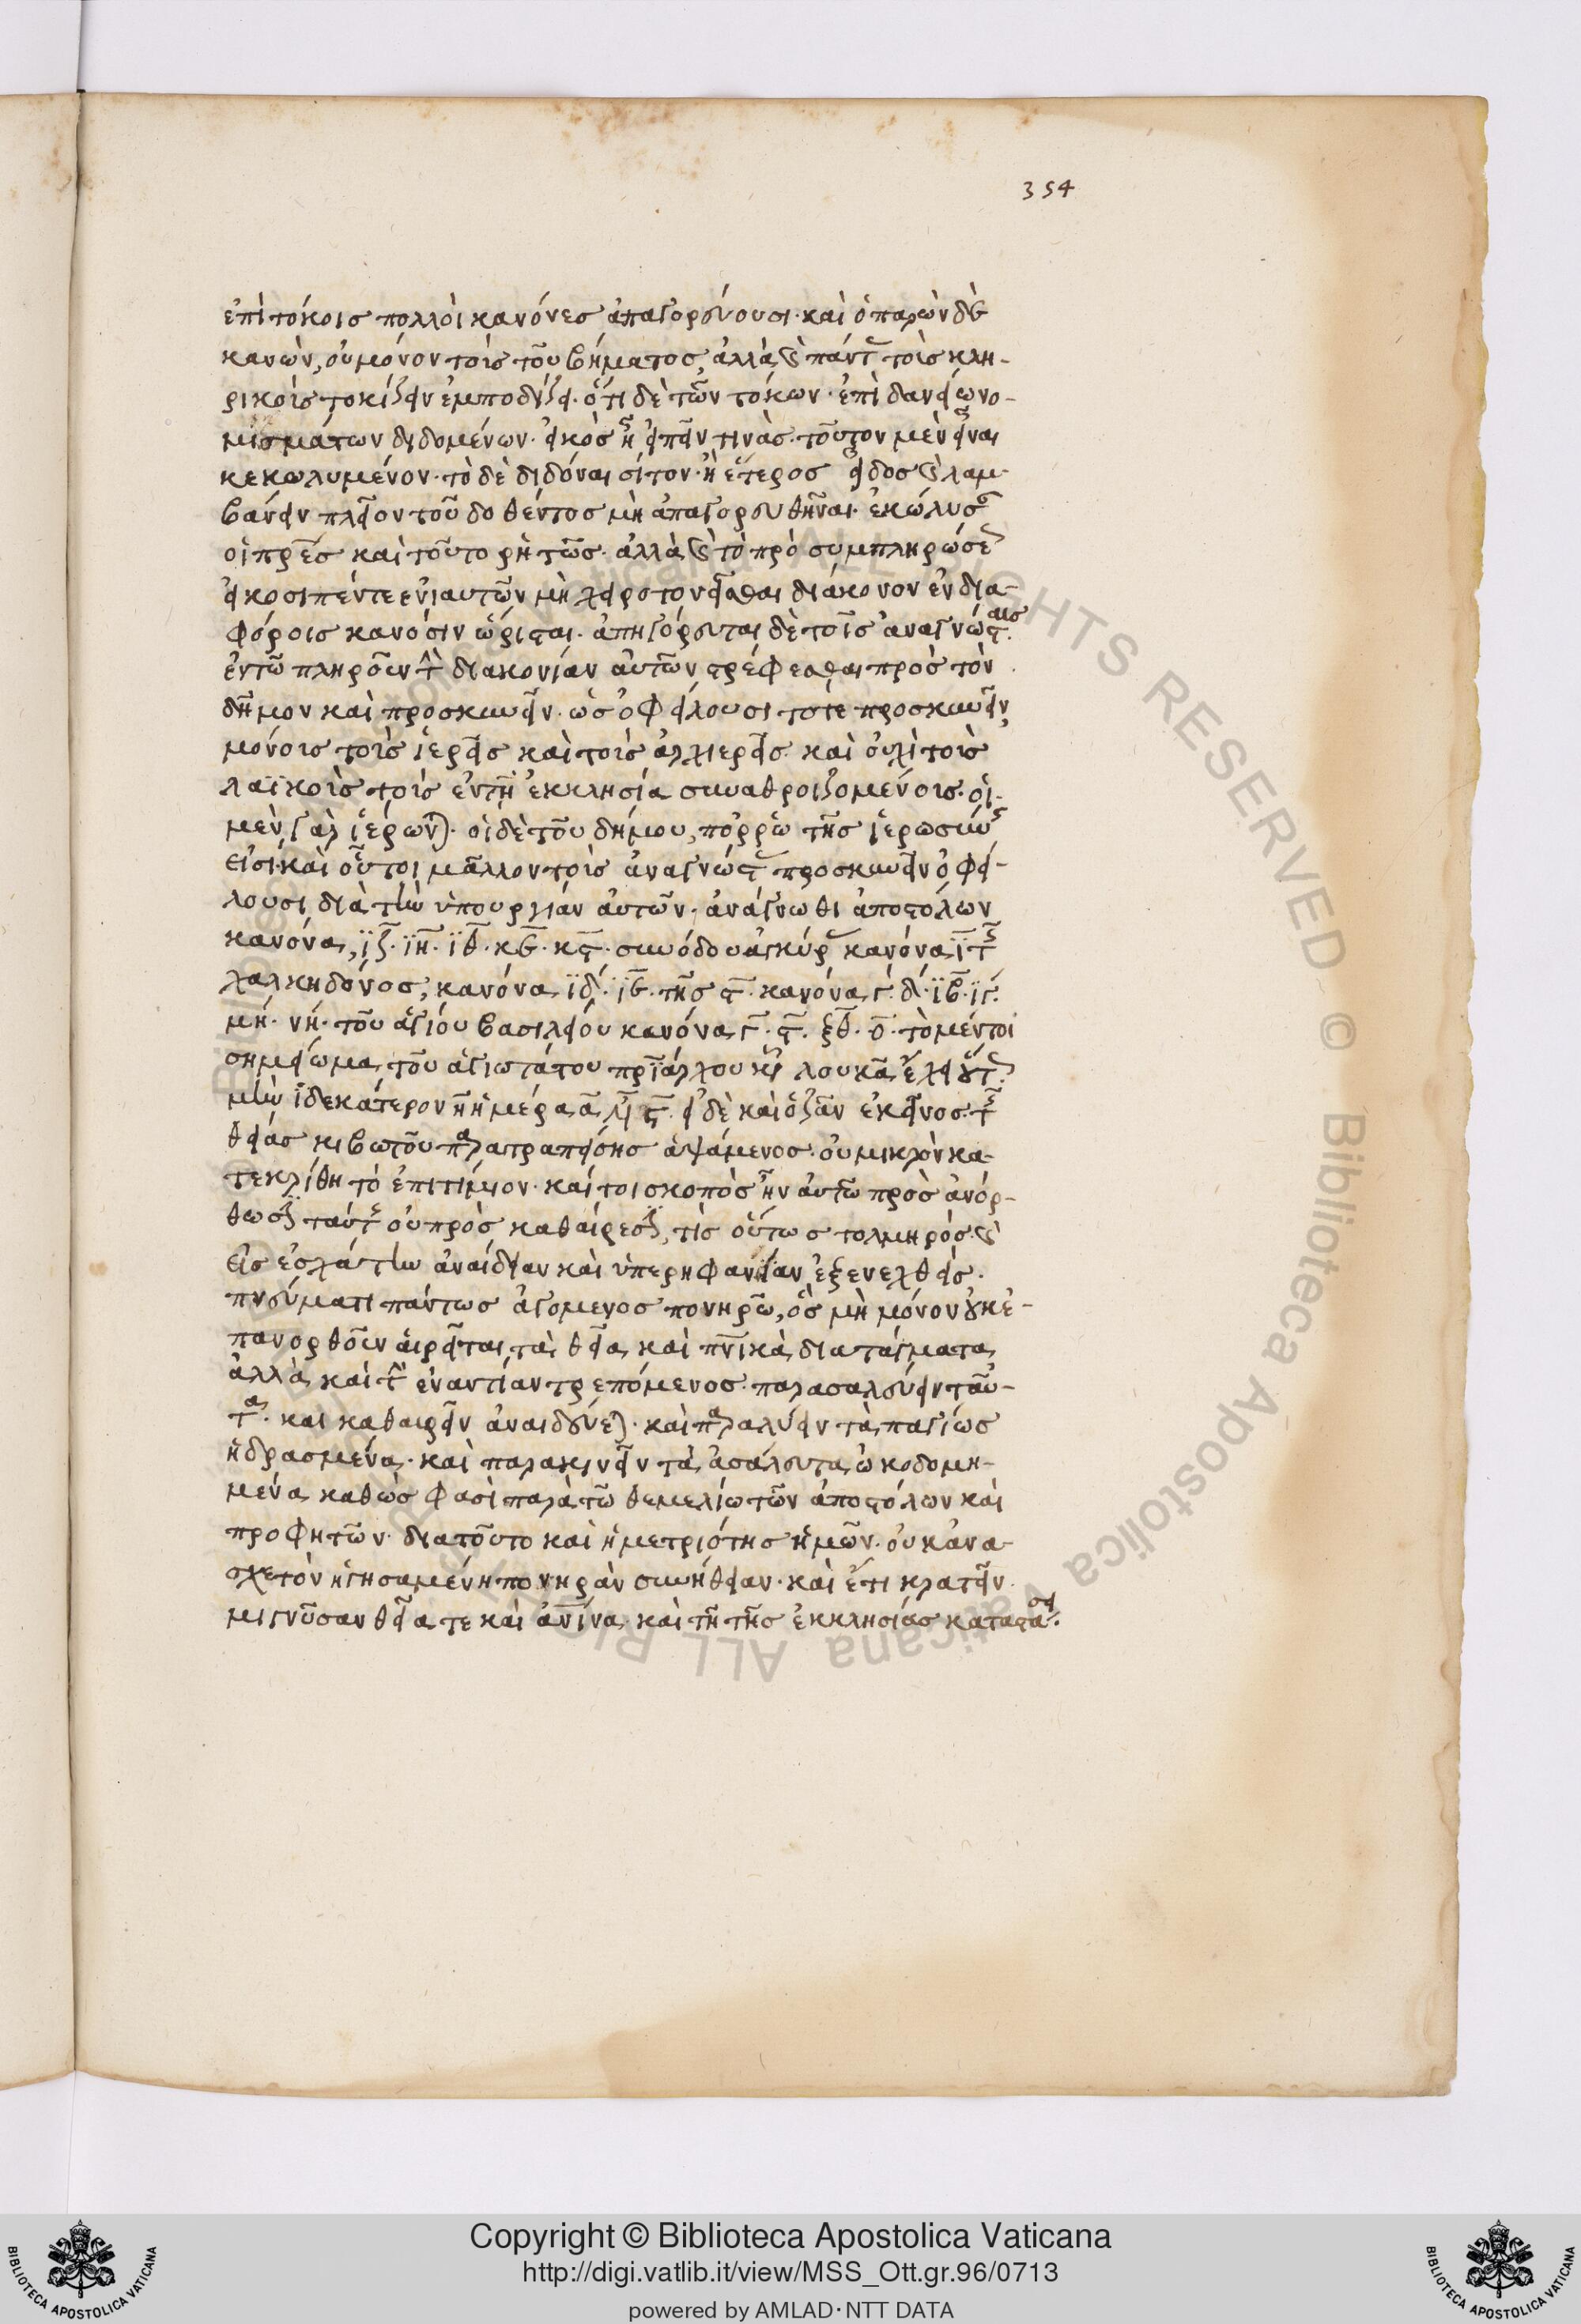 354
ἐπὶ τόκοις πολλοὶ κανόνες ἀπαγορεύουσι· καὶ ὁ παρὼν δὲ
κανὼν, οὐ μόνον τοῖς τοῦ βήματος, ἀλλὰ καὶ πάντ τοῖς κλη-
ρικοῖς τοκίζειν ἐμποδίζει· ὅτι δὲ τῶν τόκων· ἐπὶ δανείω νο-
μισμάτων διδομένων· εἰκὸς ἦ εἰπεῖν τινὰς· τοῦτον μὲν εἶναι
κεκωλυμένον· τὸ δὲ διδόναι σίτον· ἢ ἕτερος εἶδος καὶ λαμ-
βάνειν πλεῖον τοῦ δοθέντος μὴ ἀπαγορευθῆναι· ἐκώλυσ
οἱ πρες καὶ τοῦτο ρητῶς· ἀλλὰ καὶ τὸ πρὸ συμπληρώσε
εἰκοσιπέντε ἐνιαυτῶν μὴ χειροτονεῖσθαι διάκονον ἐν δια-
φόροις κανόσιν ὥρισται· ἀπηγόρευται δὲ τοῖς ἀναγνώσταις
ἐν τῶ πληροῦν τ διακονίαν αὐτῶν στρέφεσθαι πρὸς τὸν
δῆμον καὶ προσκυνεῖν· ὡς ὀφείλουσι τότε προσκυνεῖν
μόνοις τοῖς ἱερεῖς καὶ τοῖς ἀρχιερεῖς· καὶ οὐχὶ τοῖς
λαϊκοῖς τοῖς ἐν τῆ ἐκκλησία συναθροιζομένοις· οἱ
μὲν γὰρ ἱέρωνται· οἱ δὲ τοῦ δήμου, πόρρω τῆς ἱερωσύν
εἰσὶ καὶ οὗτοι μᾶλλον τοῖς ἀναγνώστ προσκυνεῖν ὀφεί-
λουσι διὰ τὴν ὑπουργίαν αὐτῶν· ἀνάγνωθι ἀποστόλων
κανόνα, ιζ· ιη· ιθ· κβ· κϛ· συνόδου ἀγκύρ κανόνα ι τ
χαλκηδόνος, κανόνα ιδ· ιβ· τῆς ϛ· κανόνα γ· δ· ιβ· ιγ·
μη· νη· τοῦ ἁγίου βασιλείου κανόνα γ· ϛ· ξθ· ο· τὸ μέντοι
σημείωμα τοῦ ἁγιωτάτου πριάρχου κυ λουκᾶ ἔχει οὕτ·
μὴν ιδεκάτερον ἡμέρα α
θείας κιβωτοῦ παρατραπείσης ἁψάμενος· οὐ μικρὸν κα-
τεκρίθη τὸ ἐπιτίμιον· καίτοι σκοπὸς ἦν αὐτῶ πρὸς ἀνόρ-
θωσ ταύτ οὐ πρὸς καθαίρεσ, τίς οὕτως τολμηρὸς καὶ
εἰς ἐσχάτην ἀναίδειαν καὶ ὑπερηφανίαν ἐξενεχθεὶς·
πνεύματι πάντως ἀγόμενος πονηρῶ, ὃς μὴ μόνον οὐκ ἐ-
πανορθοῦν αἱρεῖται τὰ θεῖα καὶ πνικὰ διατάγματα
ἀλλὰ καὶ τ ἐναντίαν τρεπόμενος· παρασαλεύειν ταῦ-
τα· καὶ καθαιρεῖν ἀναιδεύεται· καὶ παραλύειν τὰ παγίως
ἡδρασμένα· καὶ παρακινεῖν τὰ ἀσάλευτα ὠκοδομη-
μένα καθώς φασὶ παρὰ τῶ θεμελίω τῶν ἀποστόλων καὶ
προφητῶν· διατοῦτο καὶ ἡ μετριότης ἡμῶν· οὐκ ἀνα-
σχετὸν ἡγησαμένη πονηρὰν συνήθειαν· καὶ ἔτι κρατεῖν
μιγνῦσαν θεῖά τε καὶ ἀνινα· καὶ τῆ τῆς ἐκκλησίας καταστάσει·
Copyright © Biblioteca Apostolica Vaticana
http://digi.vatlib.it/view/MSS_Ott.gr.96/0713
powered by AMLAD·NTT DATA
BIBLIOTECA APOSTOLICA VATICANA
BIBLIOTECA APOSTOLICA VATICANA